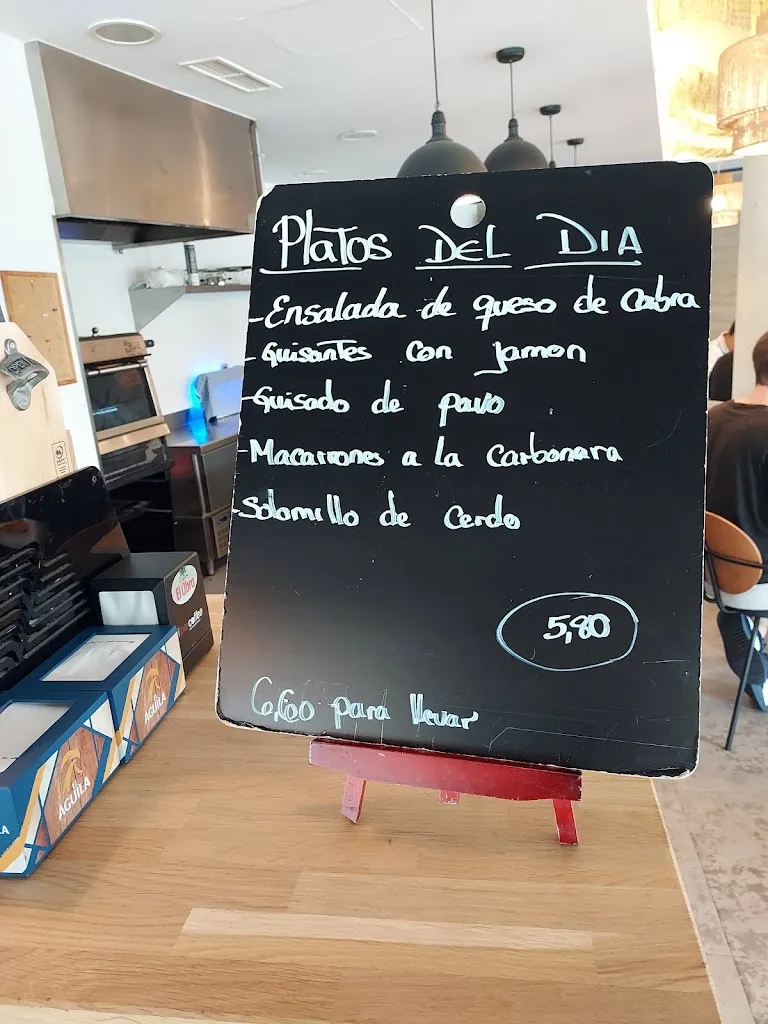 Platos DEL DIA
-Ensalada de queso de Cabra
-Guisantes con jamon
-Guisado de pavo
-Macarrones a la Carbonara
-Solomillo de Cerdo
5,80
6,60 para llevar
El Obrador
coffee
AGUILA
AGUILA